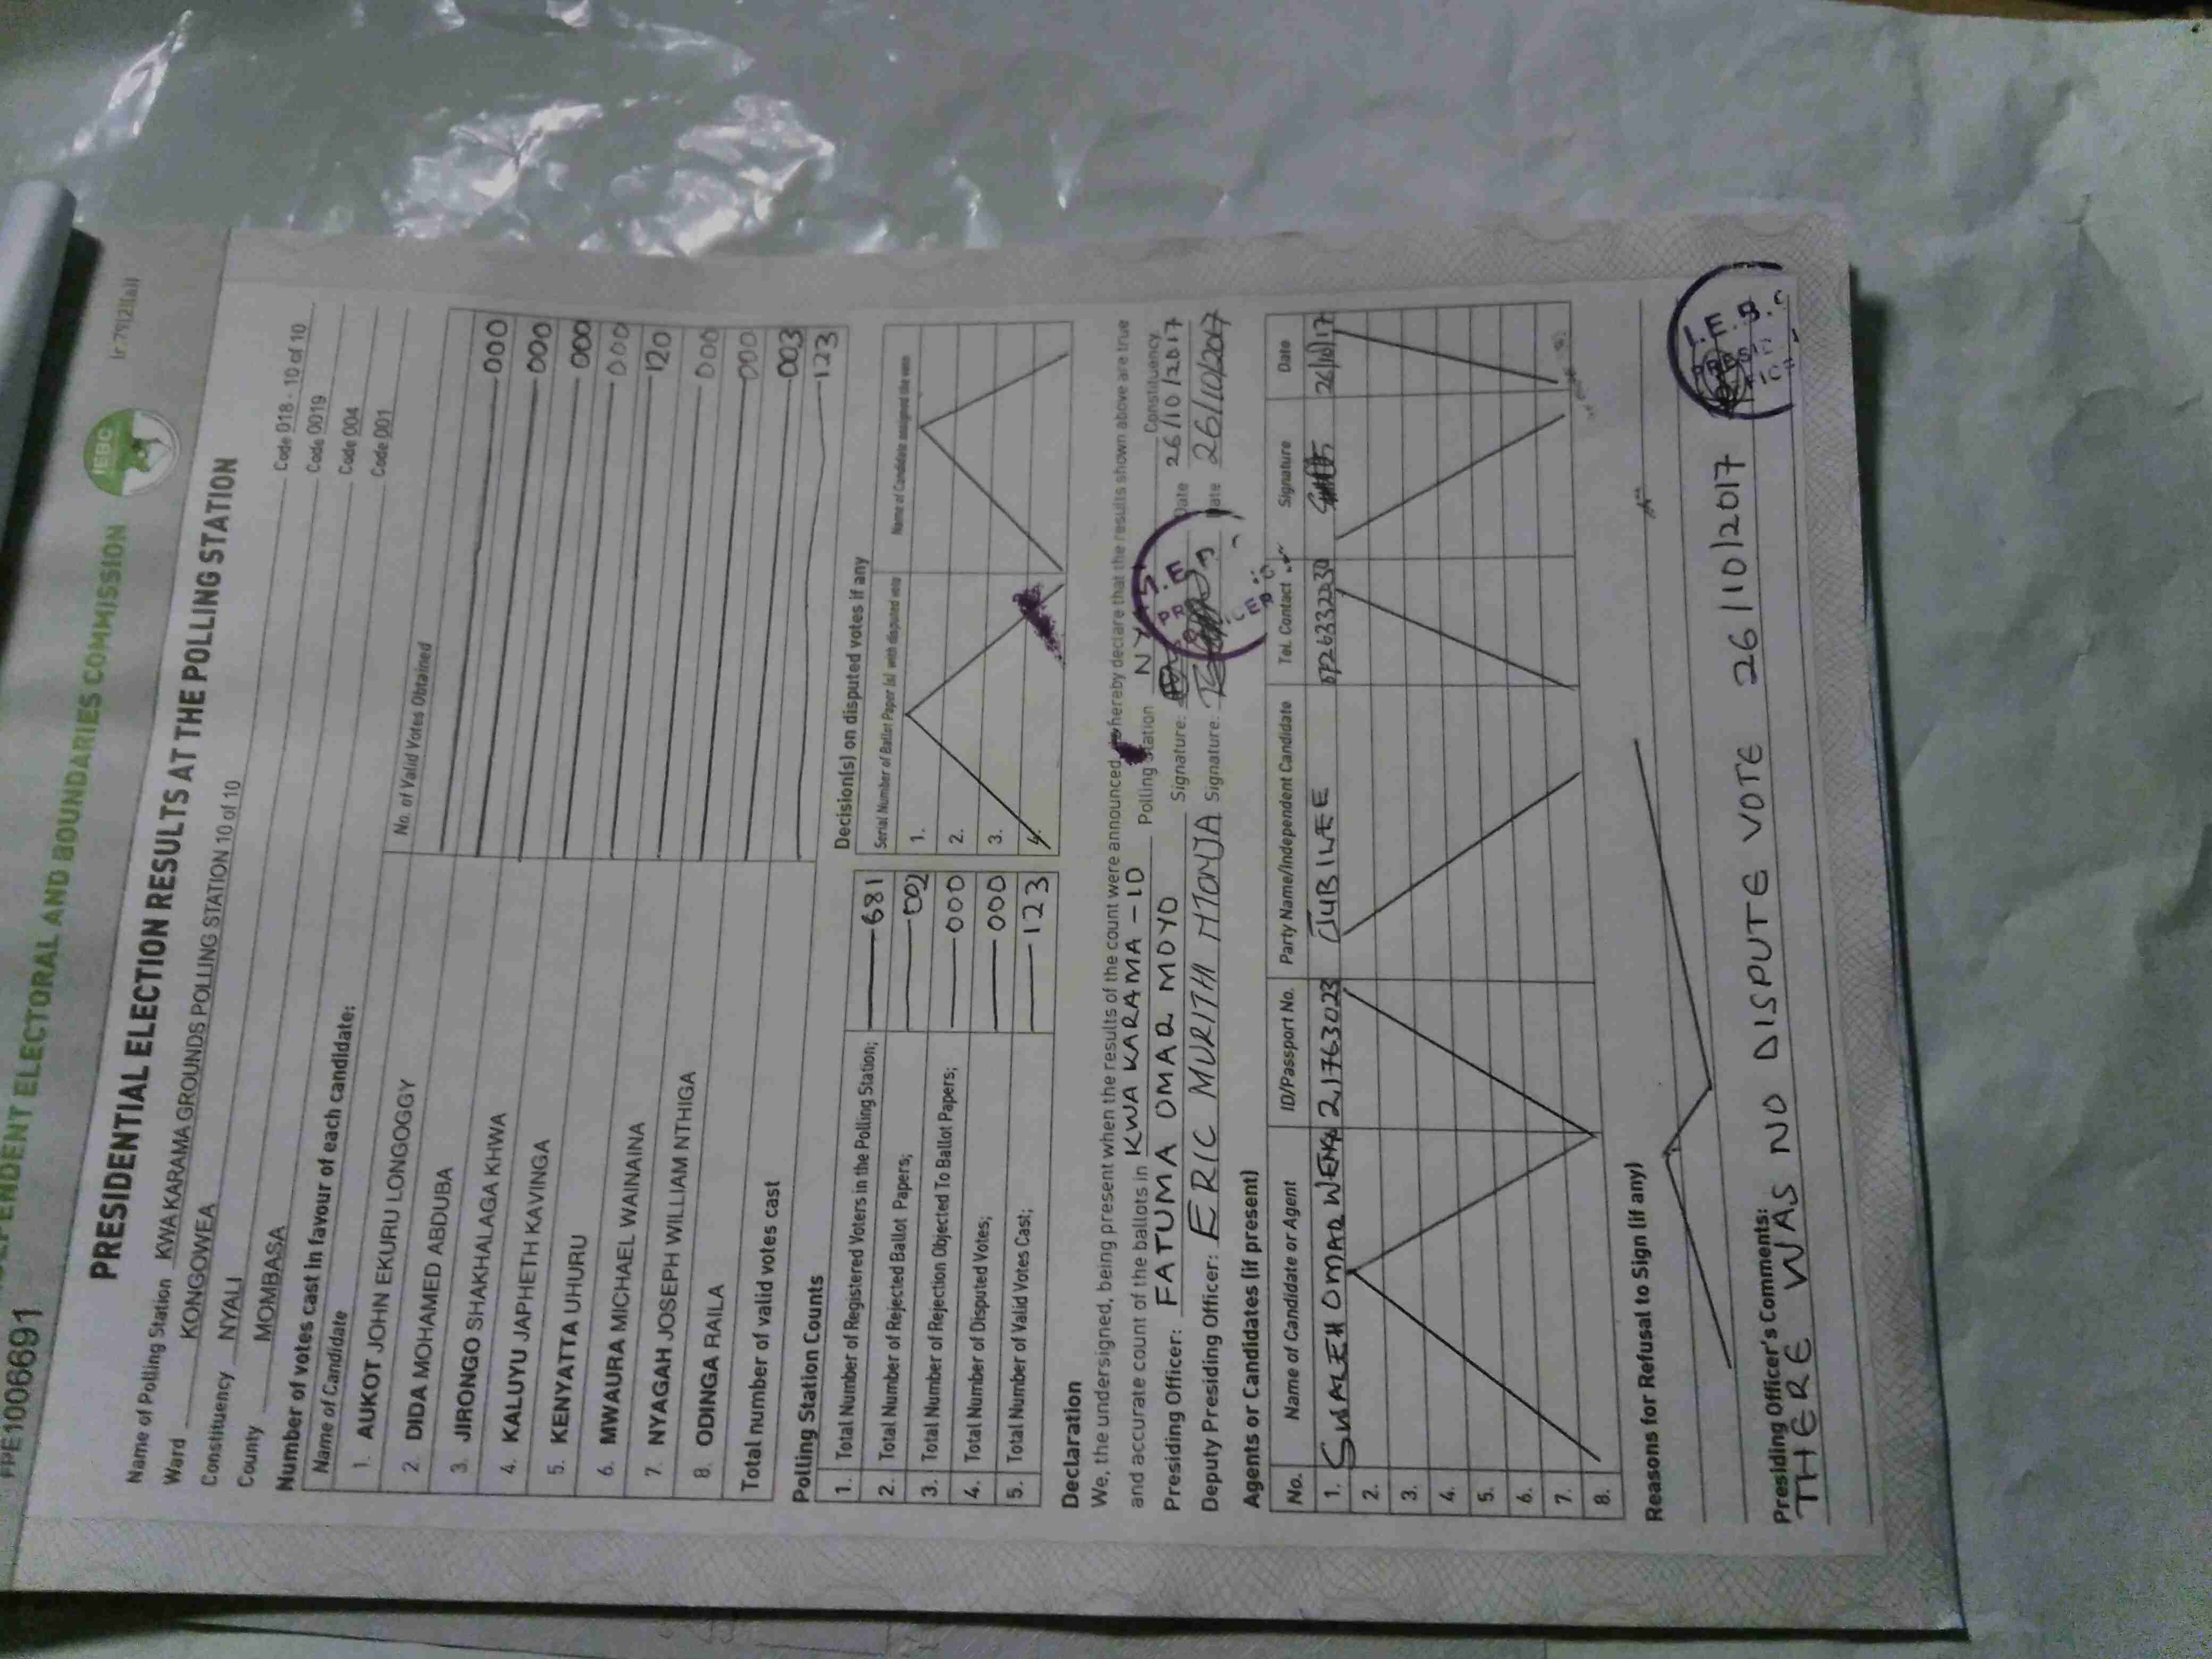 PRE1006691
INDEPENDENT ELECTORAL AND BOUNDARIES COMMISSION
IEBC
PRESIDENTIAL ELECTION RESULTS AT THE POLLING STATION
Name of Polling Station KWA KARAMA GROUNDS POLLING STATION 10 of 10 Code 018 - 10 of 10
Ward KONGOWEA Code 0019
Constituency NYALI Code 004
County MOMBASA Code 001
Number of votes cast in favour of each candidate:
Name of Candidate No. of Valid Votes Obtained
1. AUKOT JOHN EKURU LONGOGGY 000
2. DIDA MOHAMED ABDUBA 000
3. JIRONGO SHAKHALAGA KHWA 000
4. KALUYU JAPHETH KAVINGA 000
5. KENYATTA UHURU 120
6. MWAURA MICHAEL WAINAINA 000
7. NYAGAH JOSEPH WILLIAM NTHIGA 000
8. ODINGA RAILA 003
Total number of valid votes cast 123
Polling Station Counts
1. Total Number of Registered Voters in the Polling Station; 681
2. Total Number of Rejected Ballot Papers; 002
3. Total Number of Rejection Objected To Ballot Papers; 000
4. Total Number of Disputed Votes; 000
5. Total Number of Valid Votes Cast; 123
Decision(s) on disputed votes if any
Serial Number of Ballot Paper (s) with disputed vote Name of Candidate assigned the vote
1.
2.
3.
4.
Declaration
We, the undersigned, being present when the results of the count were announced, do hereby declare that the results shown above are true
and accurate count of the ballots in KWA KARAMA - 10 Polling Station Constituency
Presiding Officer: FATUMA OMAR MOYO Signature: Date 26/10/2017
Deputy Presiding Officer: ERIC MURITHI Signature: Date 26/10/2017
Agents or Candidates (if present)
No. Name of Candidate or Agent ID/Passport No. Party Name/Independent Candidate Tel. Contact Signature Date
1. SWALEH OMAR 21763023 JUBILEE 26/10/17
2.
3.
4.
5.
6.
7.
8.
Reasons for Refusal to Sign (if any)
Presiding Officer's Comments:
THERE WAS NO DISPUTE VOTE 26/10/2017